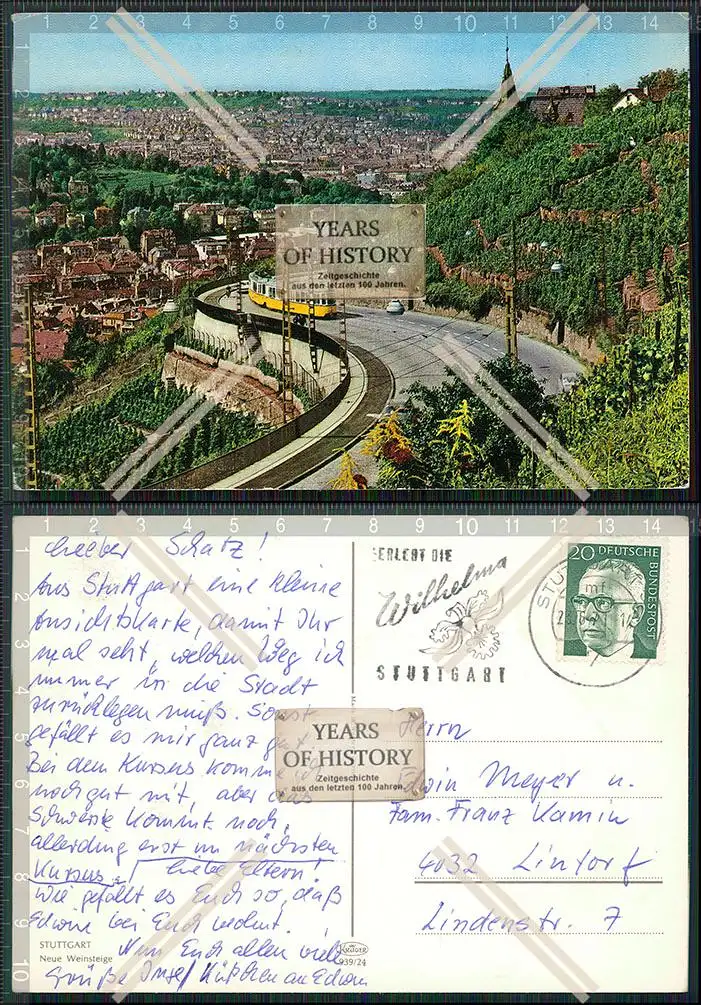 YEARS
OF HISTORY
Zeitgeschichte
aus den letzten 100 Jahren.
Lieber Schatz!
Aus Stuttgart eine kleine
Ansichtskarte, damit Ihr
mal seht, welchen Weg ich
immer in die Stadt
zurücklegen muß. Sonst
gefällt es mir ganz gut.
Bei dem Kursus komme ich
noch gut mit, aber das
Schwerste kommt noch,
allerding erst im nächsten
Kursus. Liebe Eltern!
Wie gefällt es Euch so, daß
Edwin bei Euch wohnt.
Nun Euch allen viele
Grüße Inge / Küßchen an Edwin
STUTTGART
Neue Weinsteige
KRÜGER
939/24
ERLEBT DIE
Wilhelma
STUTTGART
STUTTGART
20 DEUTSCHE
BUNDESPOST
YEARS
OF HISTORY
Zeitgeschichte
aus den letzten 100 Jahren.
Herrn
Edwin Meyer u.
Fam. Franz Kamin
4032 Lintorf
Lindenstr. 7